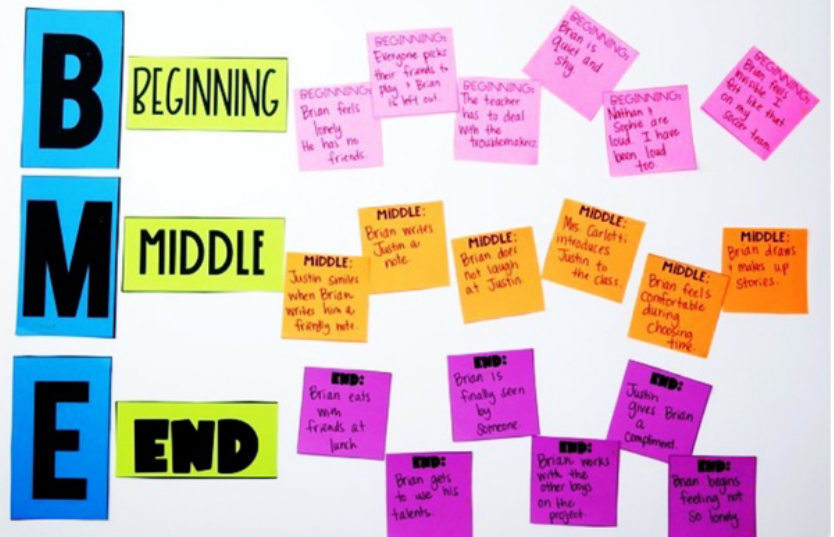 B
BEGINNING
BEGINNING:
Brian feels
lonely.
He has no
friends.
BEGINNING:
Everyone picks
their friends to
play & Brian
is left out.
BEGINNING:
The teacher
has to deal
with the
troublemakers.
BEGINNING:
Brian is
quiet and
shy.
BEGINNING:
Nathan &
Sophie are
loud. I have
been loud
too.
BEGINNING:
Brian feels
invisible. I
felt like that
on my
soccer team.
M
MIDDLE
MIDDLE:
Justin smiles
when Brian
writes him a
friendly note.
MIDDLE:
Brian writes
Justin a
note.
MIDDLE:
Brian does
not laugh
at Justin.
MIDDLE:
Mrs. Carlotti
introduces
Justin to
the class.
MIDDLE:
Brian feels
comfortable
during
choosing
time.
MIDDLE:
Brian draws
& makes up
stories.
E
END
END:
Brian eats
with
friends at
lunch
END:
Brian gets
to use his
talents.
END:
Brian is
finally seen
by
someone.
END:
Brian works
with the
other boys
on the
project.
END:
Justin
gives Brian
a
compliment.
END:
Brian begins
feeling not
so lonely.